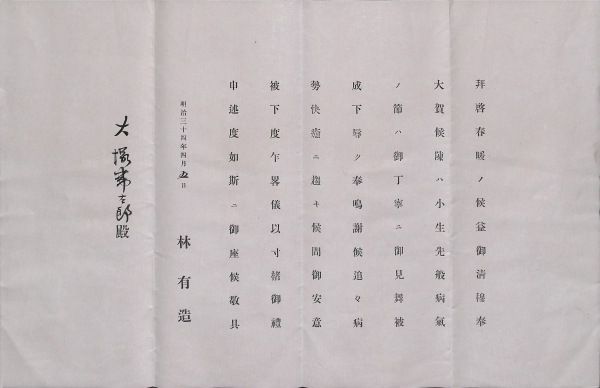 拜啓春暖ノ候益御清穆奉
大賀候陳ハ小生先般病氣
ノ節ハ御丁寧ニ御見舞被
成下辱ク奉鳴謝候追々病
勢快癒ニ趨キ候間御安意
被下度乍畧儀以寸楮御禮
申述度如斯ニ御座候敬具
明治三十四年四月五日
林有造
大塚 郎殿